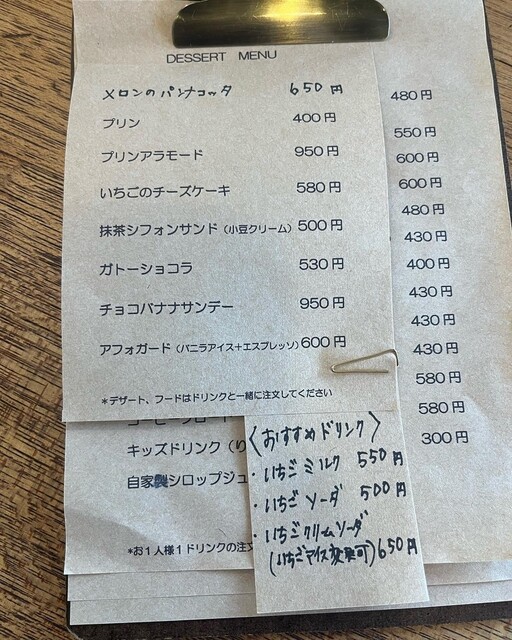 DESSERT MENU
メロンのパンナコッタ 650円
プリン 400円
プリンアラモード 950円
いちごのチーズケーキ 580円
抹茶シフォンサンド（小豆クリーム） 500円
ガトーショコラ 530円
チョコバナナサンデー 950円
アフォガード（バニラアイス＋エスプレッソ） 600円
＊デザート、フードはドリンクと一緒に注文してください
480円
550円
600円
600円
480円
430円
400円
430円
430円
430円
580円
580円
300円
キッズドリンク（り
自家製シロップジュ
＊お１人様１ドリンクの注文
〈おすすめドリンク〉
・いちごミルク 550円
・いちごソーダ 500円
・いちごクリームソーダ
（いちごアイス変更可）650円